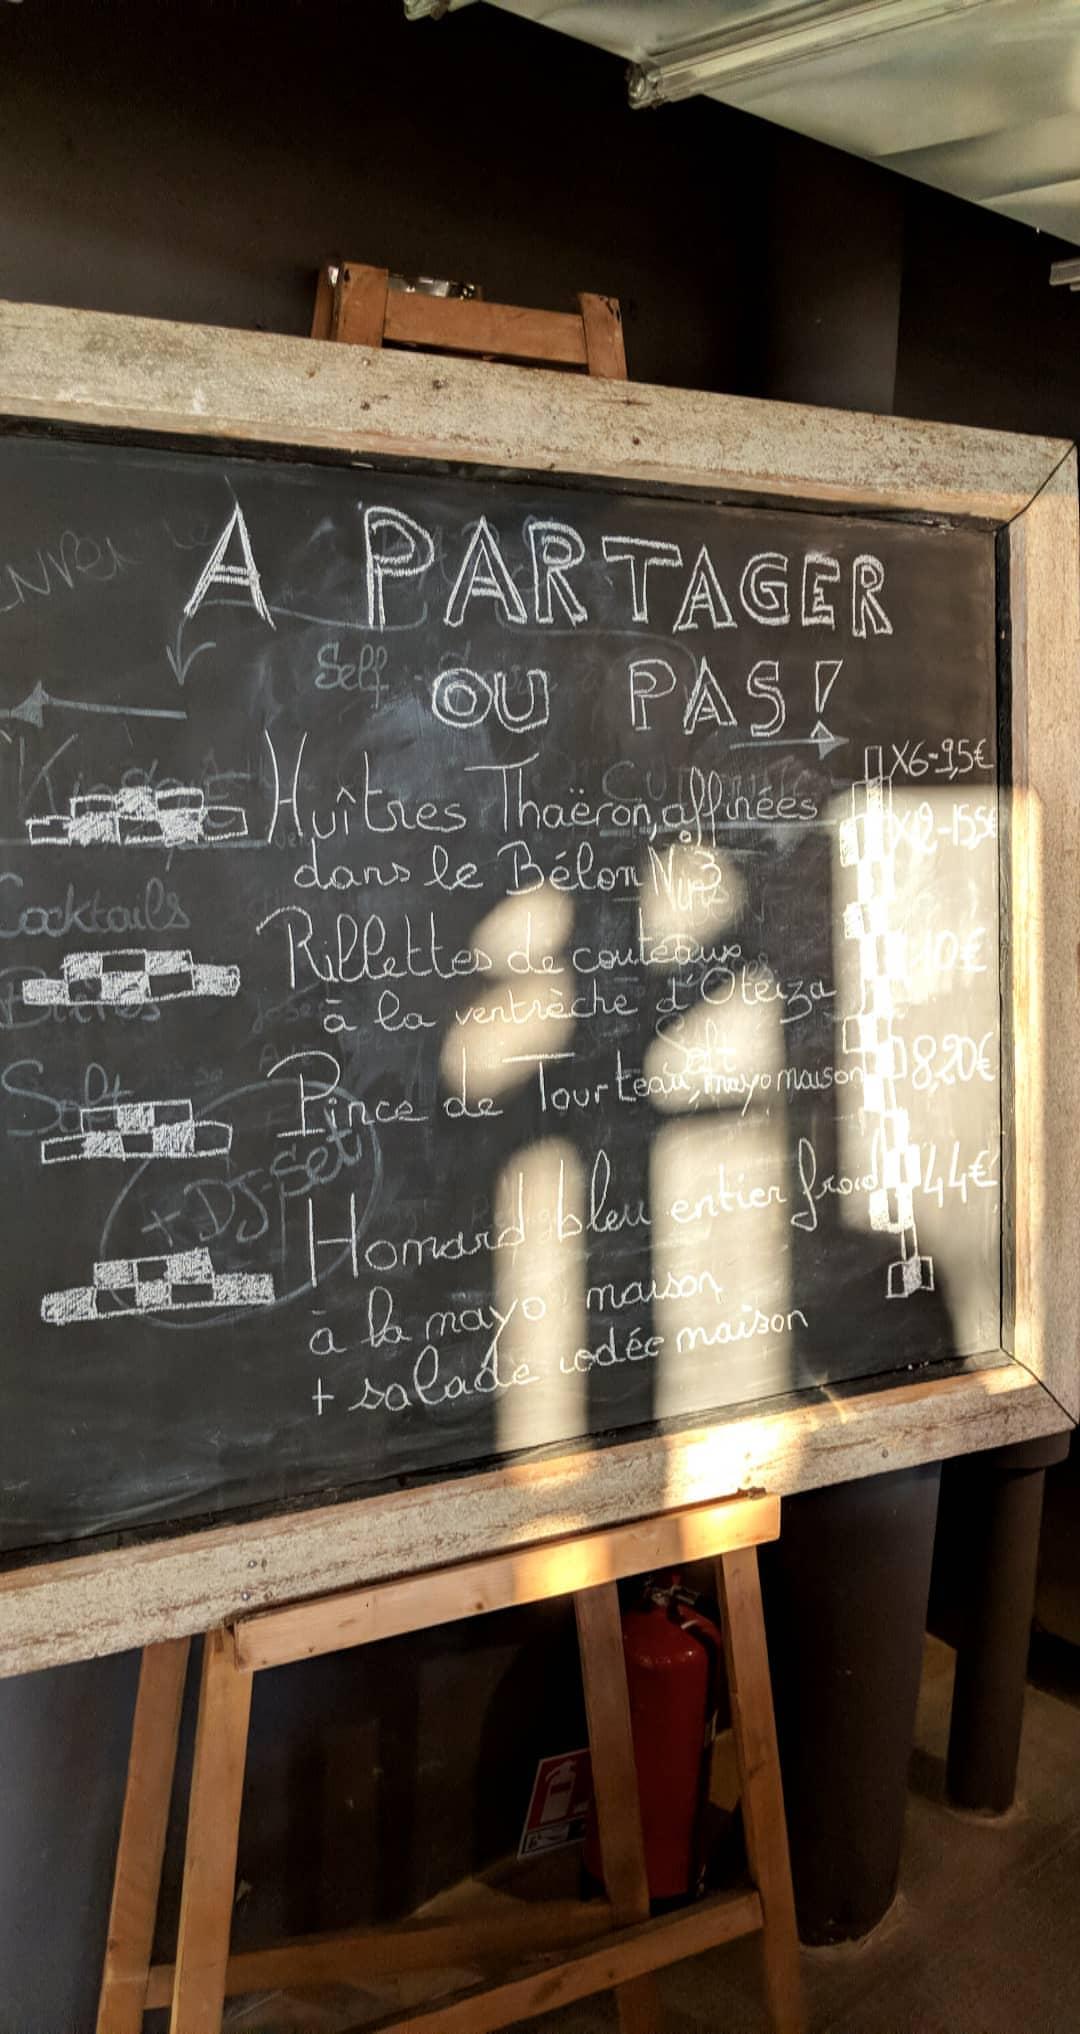 A PARTAGER
Self
OU PAS!
Huîtres Thaëron, affinées X6-9,5€
dans le Bélon N°3 X12-15,5€
Cocktails
Rillettes de couteaux 10€
à la ventrèche d'Oteiza
Soft
Soft
Pince de Tourteau, mayo maison 8,20€
+ DJ-Set
Homard bleu entier froid 44€
à la mayo maison
+ salade iodée maison